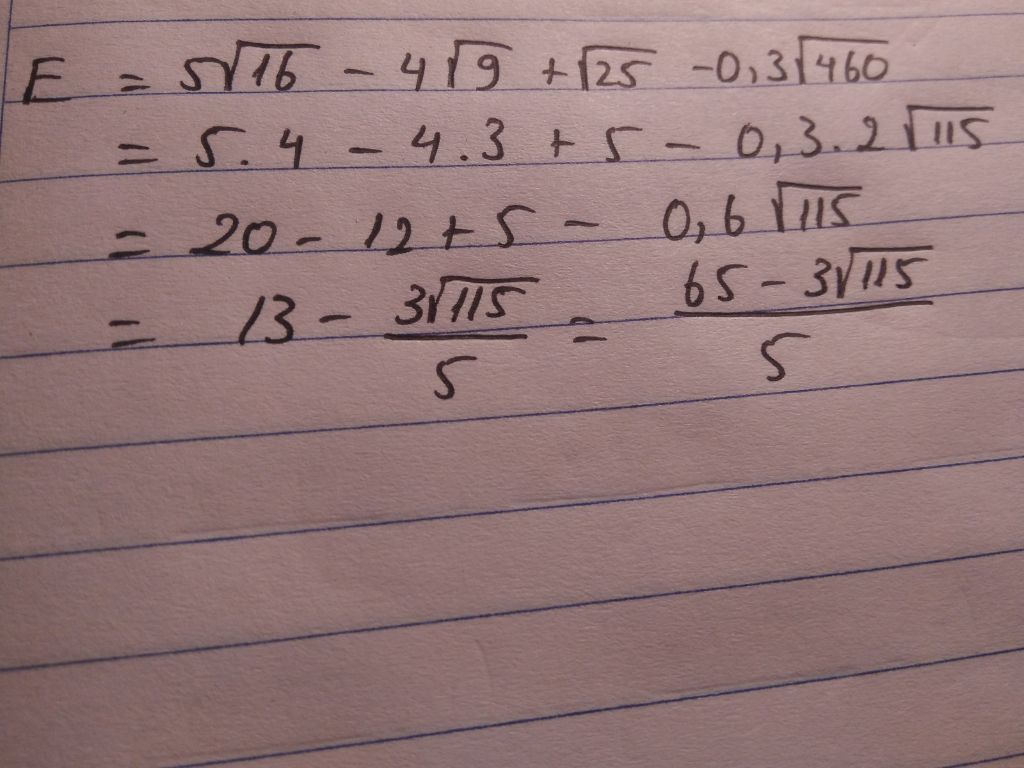 E = 5√16 - 4√9 + √25 - 0,3√460
= 5.4 - 4.3 + 5 - 0,3.2√115
= 20 - 12 + 5 - 0,6√115
= 13 - 3√115/5 = 65 - 3√115/5